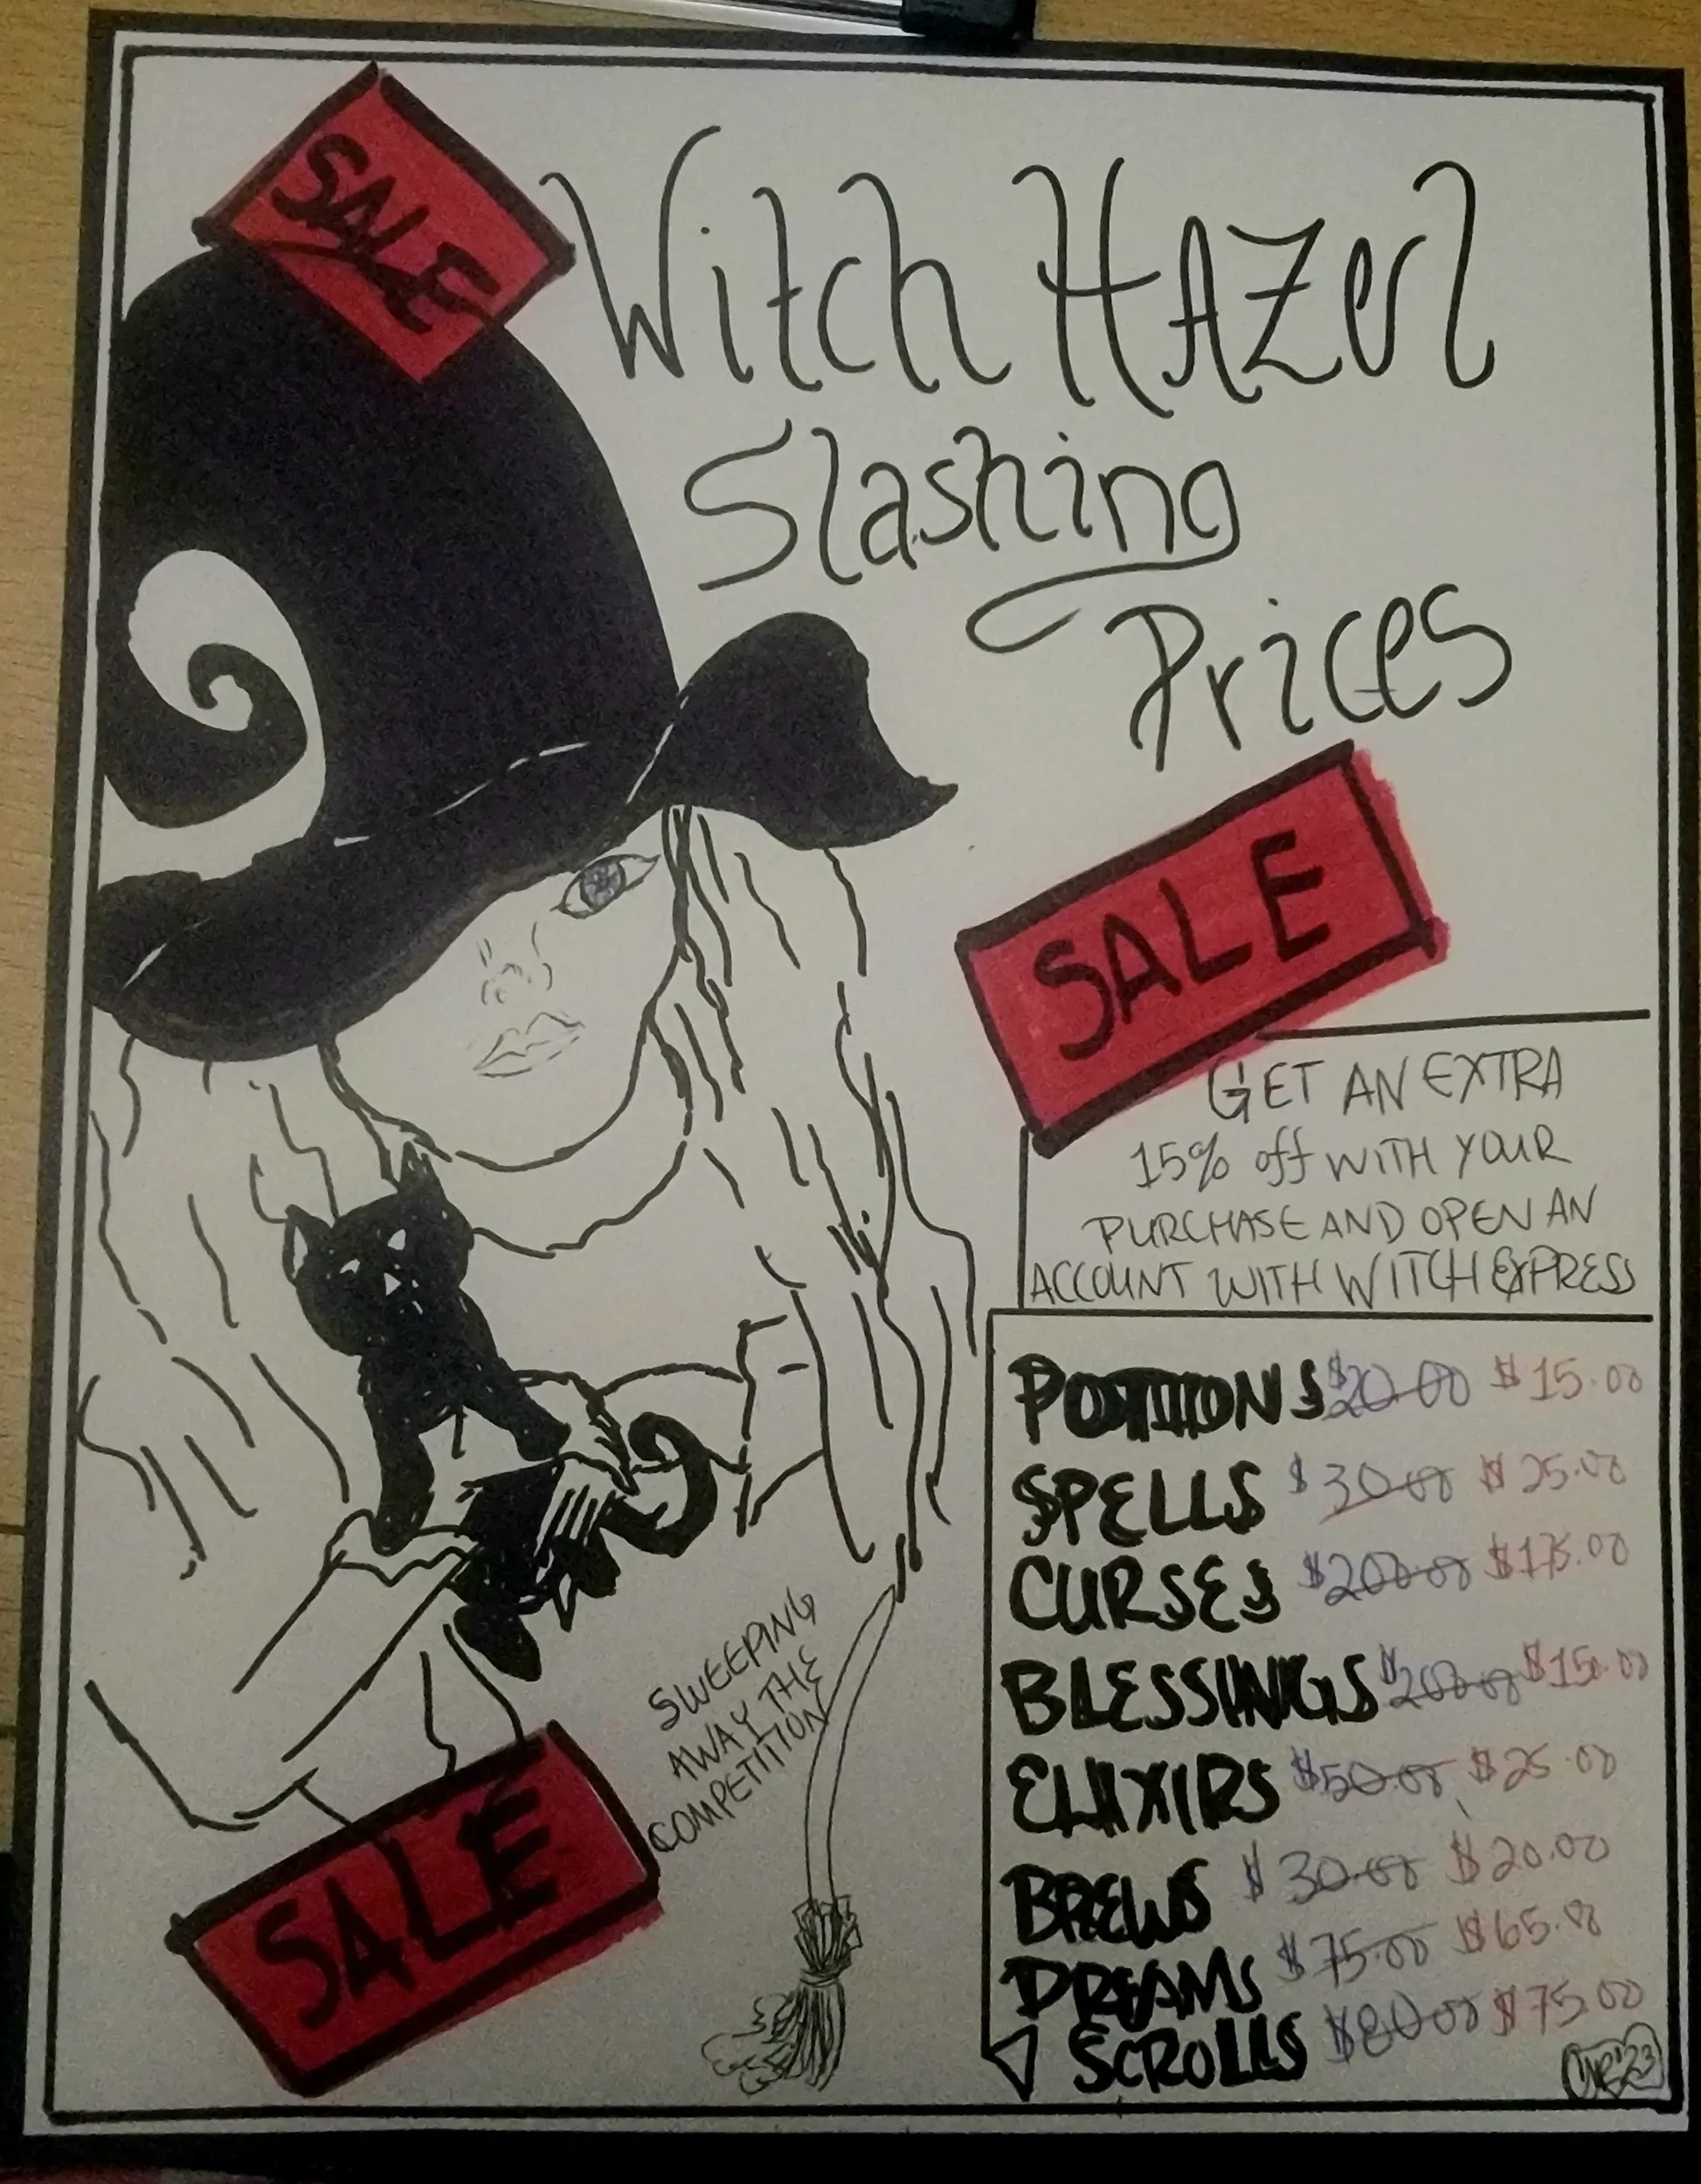 SALE
Witch HAZel
Slashing
Prices
SALE
GET AN EXTRA
15% off WITH YOUR
PURCHASE AND OPEN AN
ACCOUNT WITH WITCH EXPRESS
POTIONS $20.00 $15.00
SPELLS $30.00 $25.00
CURSES $200.00 $175.00
BLESSINGS $200.00 $150.00
ELIXIRS $50.00 $25.00
BREWS $30.00 $20.00
DREAMS $75.00 $65.00
SCROLLS $80.00 $75.00
SWEEPING
AWAY THE
COMPETITION
SALE